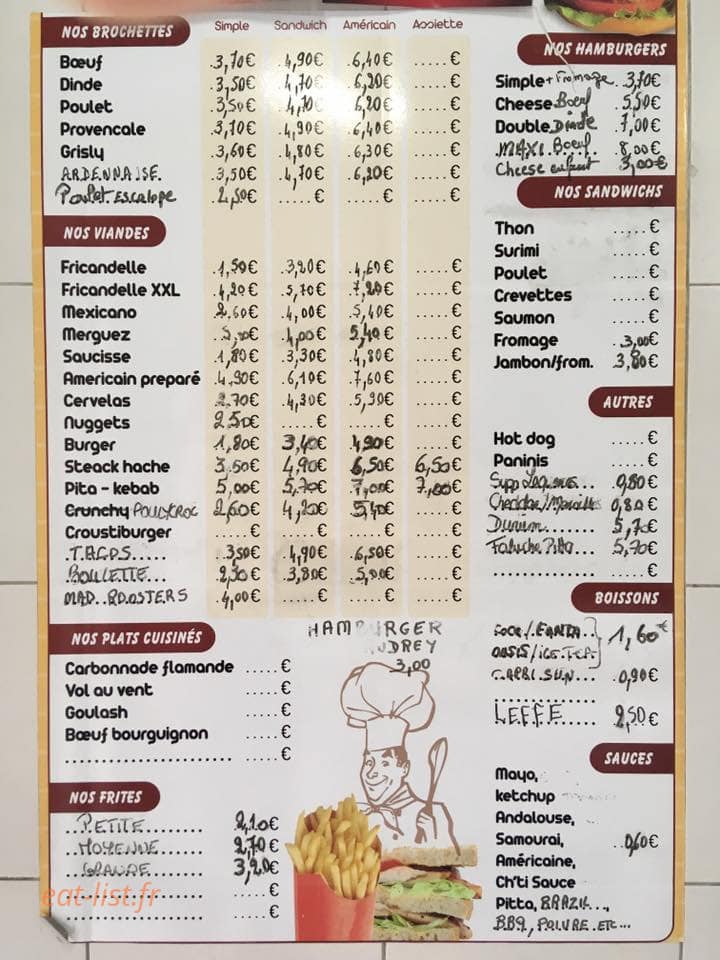 NOS BROCHETTES Simple Sandwich Américain Assiette
Bœuf .3,70€ .4,90€ .6,40€ .....€
Dinde .3,50€ .4,70€ .6,20€ .....€
Poulet .3,50€ .4,70€ .6,20€ .....€
Provencale .3,70€ .4,90€ .6,40€ .....€
Grisly .3,60€ .4,80€ .6,30€ .....€
ARDENNAISE. .3,50€ .4,70€ .6,20€ .....€
Poulet Escalope 2,50€ .....€ .....€ .....€
NOS VIANDES
Fricandelle .1,50€ .3,20€ .4,60€ .....€
Fricandelle XXL .4,20€ .5,70€ .7,20€ .....€
Mexicano 2,60€ .4,00€ .5,40€ .....€
Merguez .4,00€ 5,40€ .....€
Saucisse 1,80€ .3,30€ .4,80€ .....€
Americain preparé .4,90€ .6,10€ .7,60€ .....€
Cervelas 2,70€ .4,30€ .5,90€ .....€
Nuggets 2,50€ .....€ .....€ .....€
Burger 1,80€ 3,40€ 4,90€ .....€
Steack hache 3,50€ 4,90€ 6,50€ 6,50€
Pita - kebab 5,00€ 5,70€ 7,00€ 7,00€
Crunchy POULYCROC 2,60€ 4,20€ 5,40€ .....€
Croustiburger .....€ .....€ .....€ .....€
.3,50€ .4,90€ .6,50€ .....€
.BOULETTE... .2,30€ .3,80€ .....€
MAD..ROOSTERS 4,00€ .....€ .....€ .....€
HAMBURGER
AUDREY
3,00
NOS PLATS CUISINÉS
Carbonnade flamande .....€
Vol au vent .....€
Goulash .....€
Bœuf bourguignon .....€
.....€
NOS FRITES
..PETITE....... 2,10€
..MOYENNE...... 2,70€
..GRANDE....... 3,20€
.....€
.....€
NOS HAMBURGERS
Simple + Fromage .3,70€
Cheese Boeuf .5,50€
Double Dinde .7,00€
.MAXI.Boeuf... 8,00€
Cheese enfant 3,00€
NOS SANDWICHS
Thon .....€
Surimi .....€
Poulet .....€
Crevettes .....€
Saumon .....€
Fromage .3,00€
Jambon/from. 3,80€
AUTRES
Hot dog .....€
Paninis .....€
Supp Légumes... .0,80€
Cheddar/Maroilles 0,80€
Durum.... 5,70€
Faluche Pitta... 5,70€
.....€
BOISSONS
COCA/.FANTA.. 1,60€
OASIS/ICE.TEA.
CAPRI.SUN... .0,90€
LEFFE..... 2,50€
SAUCES
Mayo,
ketchup
Andalouse,
Samourai, ..0,60€
Américaine,
Ch'ti Sauce
Pitta, BRAZIL...,
BBQ, POIVRE.ETC...
eat-list.fr